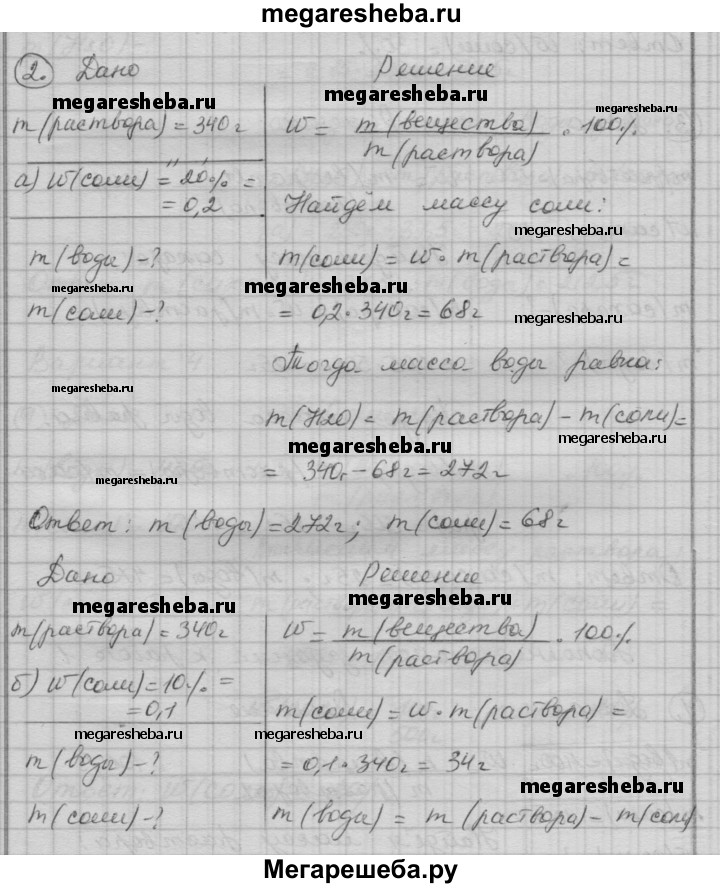 megaresheba.ru
2. Дано Решение
megaresheba.ru megaresheba.ru megaresheba.ru
m(раствора) = 340г W = m(вещества) / m(раствора) · 100%
а) W(соли) = 20% =
= 0,2 Найдём массу соли:
megaresheba.ru
m(воды) - ? m(соли) = W · m(раствора) =
megaresheba.ru megaresheba.ru
m(соли) - ? = 0,2 · 340г = 68г
megaresheba.ru
Тогда масса воды равна:
megaresheba.ru
m(H2O) = m(раствора) - m(соли) =
megaresheba.ru megaresheba.ru
= 340г - 68г = 272г
megaresheba.ru
Ответ: m(воды) = 272г; m(соли) = 68г
Дано Решение
megaresheba.ru megaresheba.ru megaresheba.ru
m(раствора) = 340г W = m(вещества) / m(раствора) · 100%
б) W(соли) = 10% =
= 0,1 m(соли) = W · m(раствора) =
megaresheba.ru megaresheba.ru
m(воды) - ? = 0,1 · 340г = 34г
megaresheba.ru
m(соли) - ? m(воды) = m(раствора) - m(соли)
Мегарешеба.ру